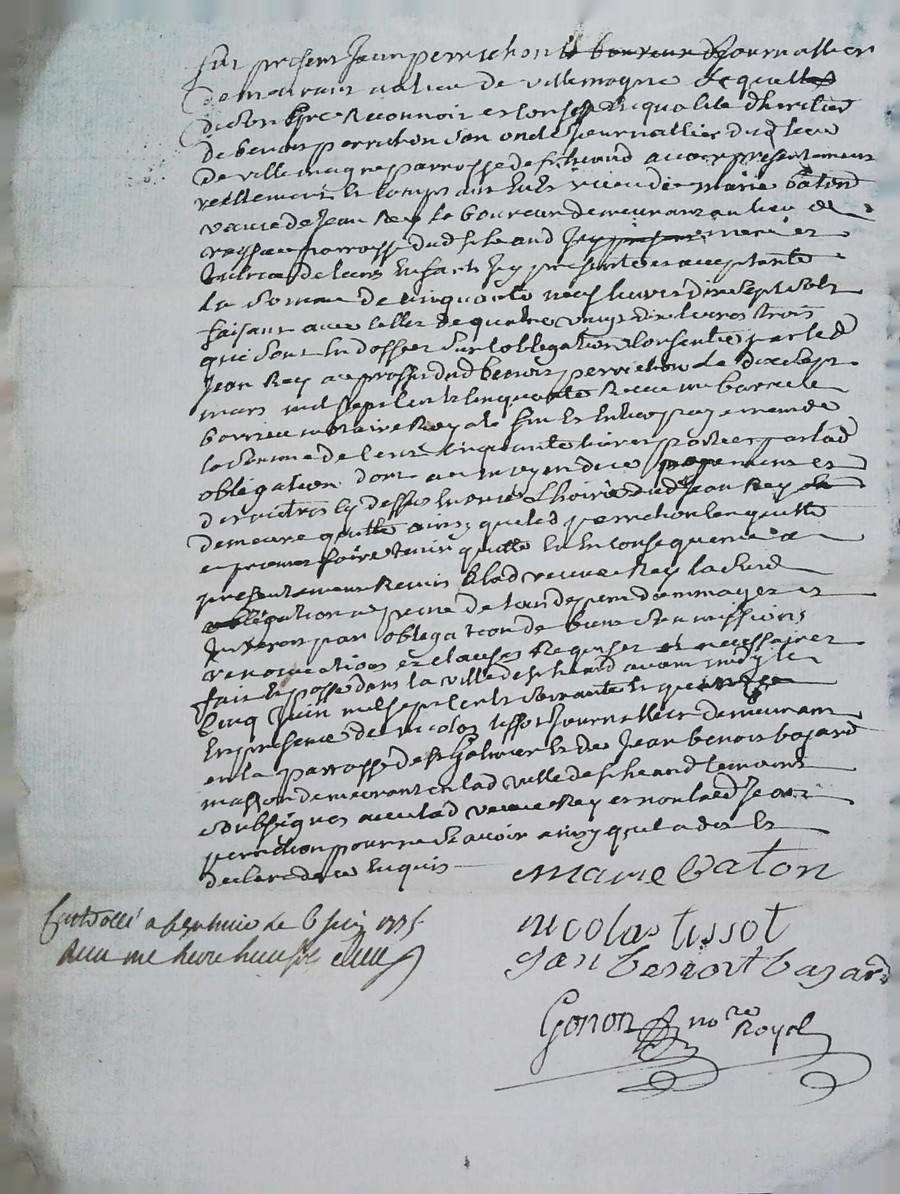 fut present Jean perrichon le boureur Journallier
demeurant au lieu de villemagne Lequel
de son gre Reconnoit et confesse En qualité dheritier
de benoit perrichon son oncle Journallier dud lieu
de ville magne parroisse de st heand avoir presentement
reellement Et comptant Eu Et receu de marie baton
veuve de Jean Rey laboureur demeurant au lieu de
parroisse dud st heand Jcy mere et
tutrice de leurs Enfants Jcy presente et acceptante
La Somme de cinquante neuf livres dix sept sols
faisant avec celles de quatre vingt dix livres trois
qui sont Endossées sur lobligation Consentie par led
Jean Rey au proffit dud benoit perrichon Le dix sept
mars mil sept cent cinquante Receue me
notaire Royal fin Et Entier payement de
la Somme de Cent cinquante livres portées par lad
obligation dont au moyen du payement et
des autres cy dessus Enoncés Lhoirie dud Jean Rey
demeure quitte ainsy que led perrichon len quitte
et promet faire tenir quitte Et En consequence a
presentement Remis a lad veuve Rey lad
obligation a peine de tous depens dommages et
Interets par obligation de biens Soumissions
renonciations et clauses Requises et necessaires
fait et passé dans la ville de st heand avant midy le
Cinq Juin mil sept cent soixante Et quinze
En presence de nicolas tissot Journallier demeurant
en la parroisse de st Galmier Et de Jean benoit bajard
masson demeurant en lad ville de st heand temoins
Soubsignes avec lad veuve Rey et non led Jean
perrichon pour ne scavoir ainsy quil a dit Et
declaré de ce Enquis
marie baton
nicolas tissot
Jan benoit bazard
Gonon nore Royal
Controllé a st heand le 6 Juin 1775
Receu une livre huit sols